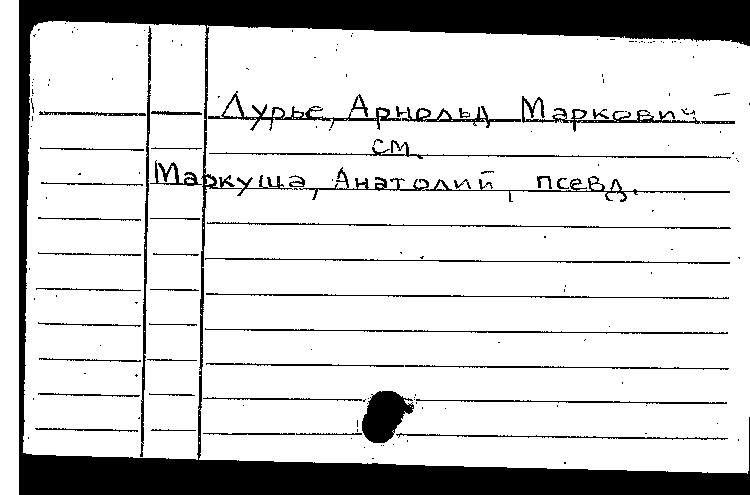 Лурье, Арнольд Маркович
см.
Маркуша, Анатолий, псевд.